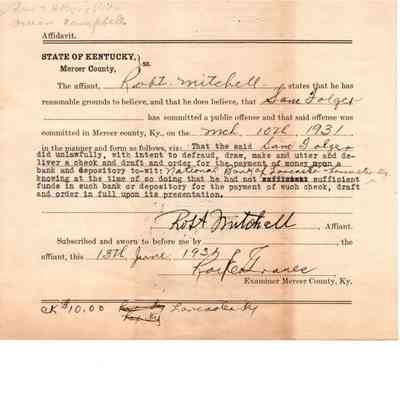 Affidavit.
STATE OF KENTUCKY, } ss.
Mercer County,
The affiant, Robt. Mitchell states that he has
reasonable grounds to believe, and that he does believe, that Sam Folger
has committed a public offense and that said offense was
committed in Mercer county, Ky., on the Mch. 10th 1931
in the manner and form as follows, viz: That the said Sam Folger
did unlawfully, with intent to defraud, draw, make and utter and de-
liver a check and draft and order for the payment of money upon a
bank and depository to-wit: National Bank of Lancaster Lancaster Ky
knowing at the time of so doing that he had not sufficient
funds in such bank or depository for the payment of such check, draft
and order in full upon its presentation.
Robt Mitchell Affiant.
Subscribed and sworn to before me by , the
affiant, this 13th June, 1932
Examiner Mercer County, Ky.
CK $10.00 Lancaster Ky